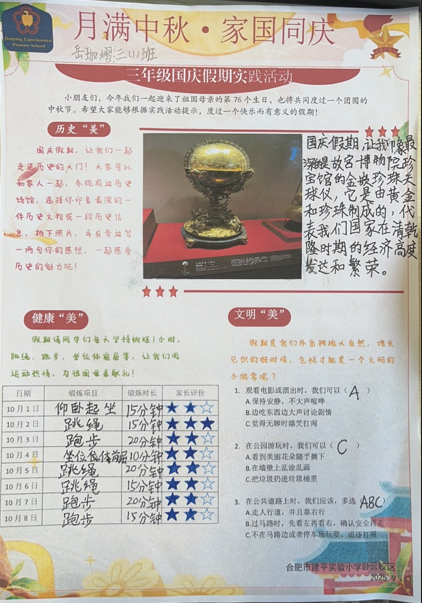 Jianping Experimental
Primary School
月满中秋·家国同庆
三(1)班
三年级国庆假期实践活动
小朋友们，今年我们一起迎来了祖国母亲的第76个生日，也将共同度过一个团圆的
中秋节。希望大家能够根据实践活动提示，度过一个快乐而有意义的假期！
历史“美”
国庆假期，让我们一起
走进历史的大门！大家可以
和家人一起，参观周边历史
场馆，选择你印象最深的一
件历史文物或一段历史信
息，拍下照片，并在旁边写
一两句你的感想，一起感受
历史的魅力吧！
国庆假期，让我印象最
深的是故宫博物院珍
宝馆的金嵌珍珠天
球仪，它是由黄金
和珍珠制成的，代
表我们国家在清乾
隆时期的经济高度
发达和繁荣。
健康“美”
假期请同学们每天坚持锻炼1小时，
跳绳、跑步、坐位体前屈等，让我们用
运动热情，为祖国母亲献礼！
日期 锻炼项目 锻炼时长 家长评价
10月1日 仰卧起坐 15分钟
10月2日 跳绳 15分钟
10月3日 跑步 20分钟
10月4日 坐位体前屈 10分钟
10月5日 跳绳 20分钟
10月6日 跳绳 15分钟
10月7日 跑步 20分钟
10月8日 跑步 15分钟
文明“美”
假期是我们外出拥抱大自然、增长
见识的好时候，怎样才能是一个文明的
小游客呢？
1. 观看电影或演出时，我们可以（A）
A.保持安静，不大声喧哗
B.边吃东西边大声讨论剧情
C.觉得无聊时嬉笑打闹
2. 在公园游玩时，我们可以（C）
A.看到美丽花朵随手摘下
B.在墙壁上乱涂乱画
C.把垃圾扔进垃圾桶里
3. 在公共道路上时，我们应该，多选（ABC）
A.走人行道，并且靠右行
B.过马路时，先看左再看右，确认安全再走
C.不在马路边或者停车场玩耍、追逐打闹
合肥市建平实验小学
2025.9